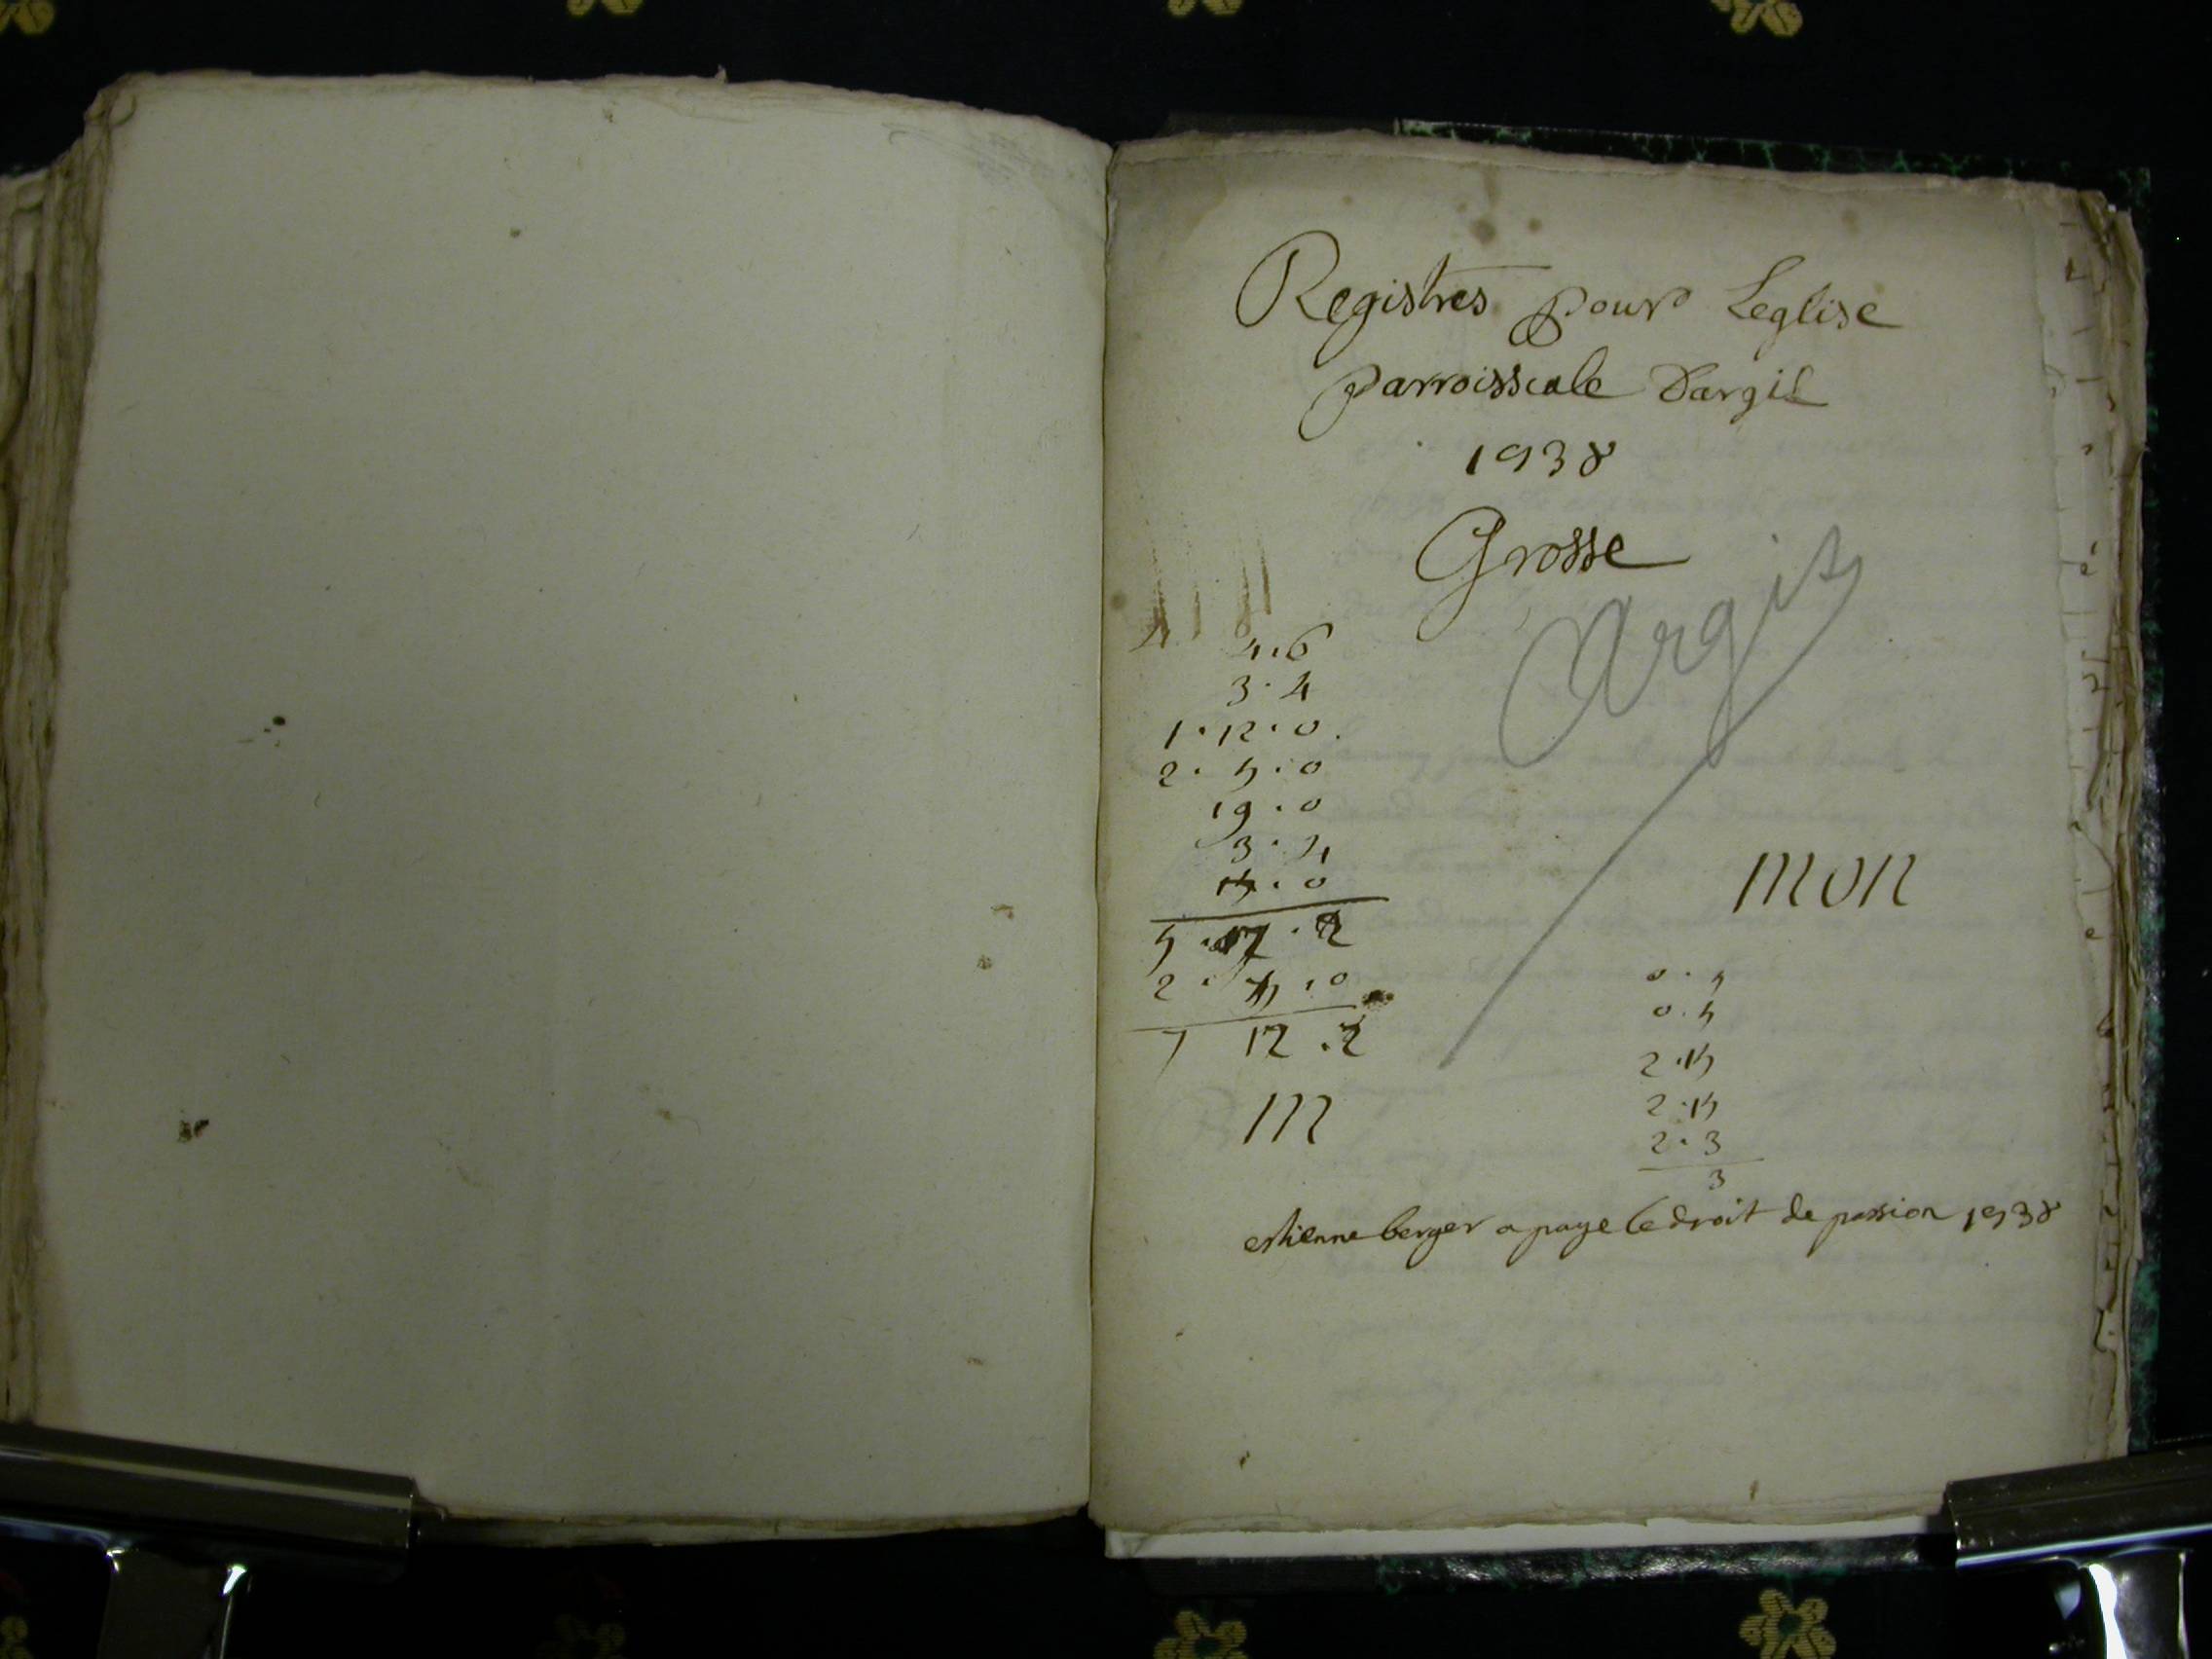 Registres pour Leglise
parroissiale Dargis
1738
Grosse
Argis
4 4.6
3.4
1.12.0.
2.5.0
19.0
3.4
15.0
5.17.2
2.15.0
7 12.2
m
mon
0.5
0.5
2.15
2.15
2.3
3
estienne berger a paye le droit de passion 1738